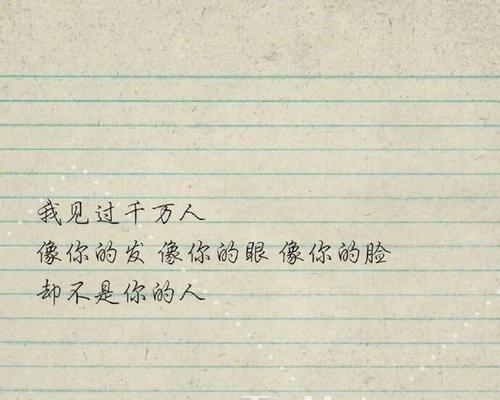 我见过千万人
像你的发 像你的眼 像你的脸
却不是你的人